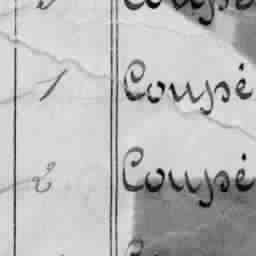 1 Coupé
2 Coupé